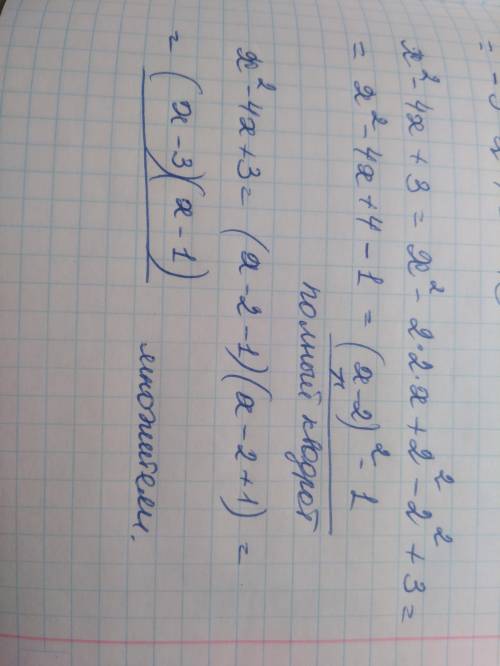 x² - 4x + 3 = x² - 2·2·x + 2² - 2² + 3 =
= x² - 4x + 4 - 1 = (x - 2)² - 1
полный квадрат
x² - 4x + 3 = (x - 2 - 1)(x - 2 + 1) =
= (x - 3)(x - 1)
множители.